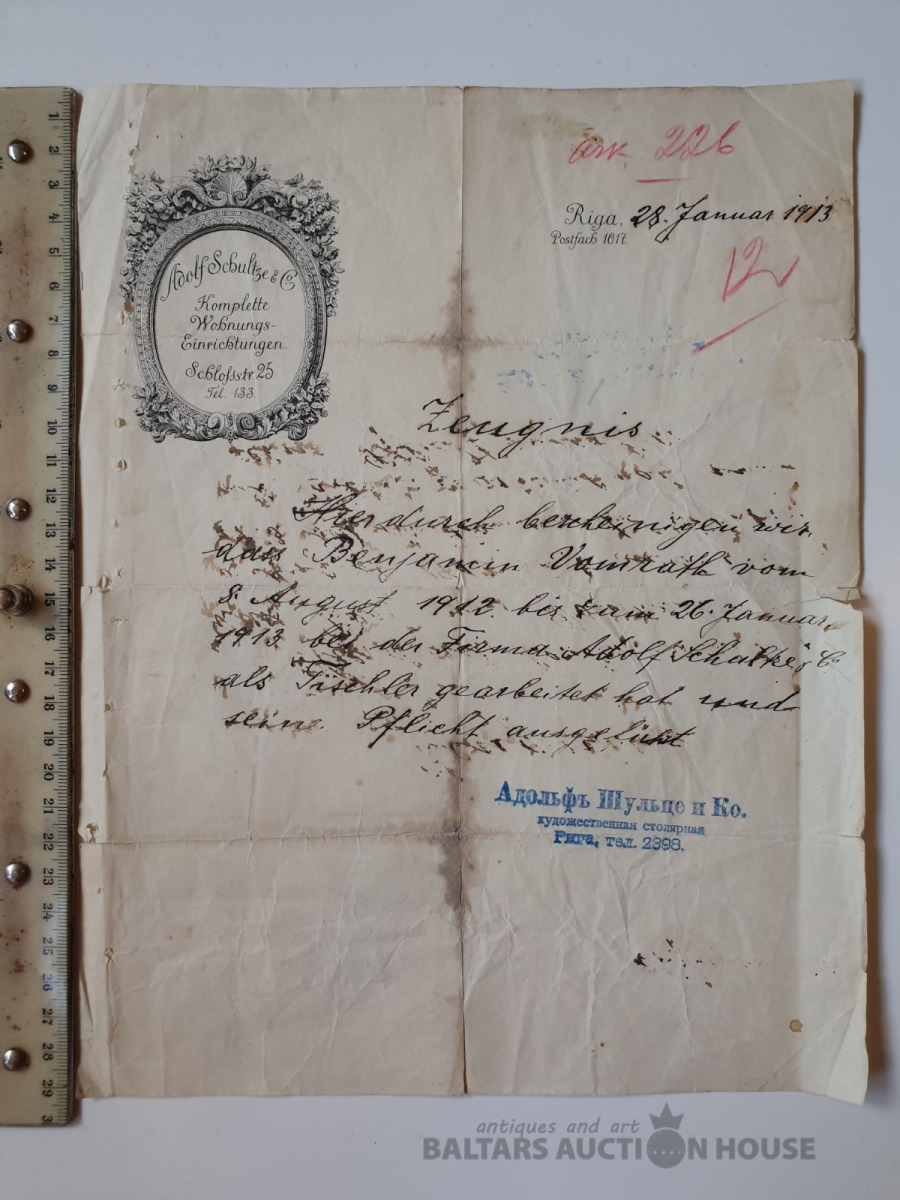 Adolf Schultze & C°
Komplette
Wohnungs-
Einrichtungen.
Schlofsstr. 25
Tel. 133.
226
Riga, 28. Januar 1913
Postfach 1017.
12
Zeugnis
Hierdurch bescheinigen wir
dass Benjamin Vomrath vom
8. August 1912 bis zum 26. Januar
1913 bei der Firma Adolf Schultze & C°
als Tischler gearbeitet hat und
seine Pflicht ausgeführt
Адольфъ Шульце и Ко.
художественная столярная
Рига, тел. 2898.
antiques and art
BALTARS AUCTION HOUSE
1 2 3 4 5 6 7 8 9 10 11 12 13 14 15 16 17 18 19 20 21 22 23 24 25 26 27 28 29 3